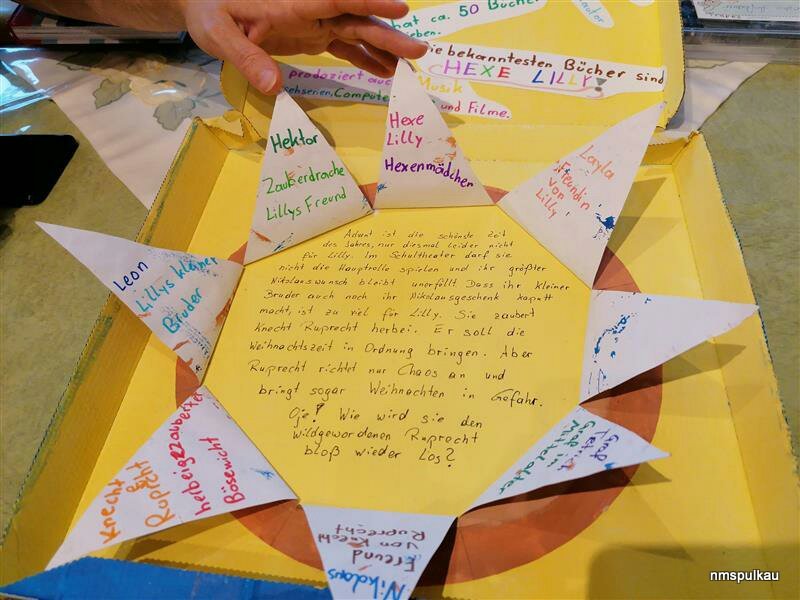 hat ca. 50 Bücher
ben.
ie bekanntesten Bücher sind
HEXE LILLY.
produziert auch Musik
sehserien, Compute und Filme.
Hektor
Zauberdrache
Lillys Freund
Hexe
Lilly
Hexenmädchen
Layla
Freundin
von
Lilly
Leon
Lillys kleiner
Bruder
Advent ist die schönste Zeit
des Jahres, nur diesmal leider nicht
für Lilly. Im Schultheater darf sie
nicht die Hauptrolle spielen und ihr größter
Nikolauswunsch bleibt unerfüllt. Dass ihr kleiner
Bruder auch noch ihr Nikolausgeschenk kaputt
macht, ist zu viel für Lilly. Sie zaubert
Knecht Ruprecht herbei. Er soll die
Weihnachtszeit in Ordnung bringen. Aber
Ruprecht richtet nur Chaos an und
bringt sogar Weihnachten in Gefahr.
Oje! Wie wird sie den
wildgewordenen Ruprecht
bloß wieder Los?
Knecht
Ruprecht
herbeigezauberter
Bösewicht
Nikolaus
Freund
von Knecht
Ruprecht
Graf
Graf im
Mittelalter
nmspulkau